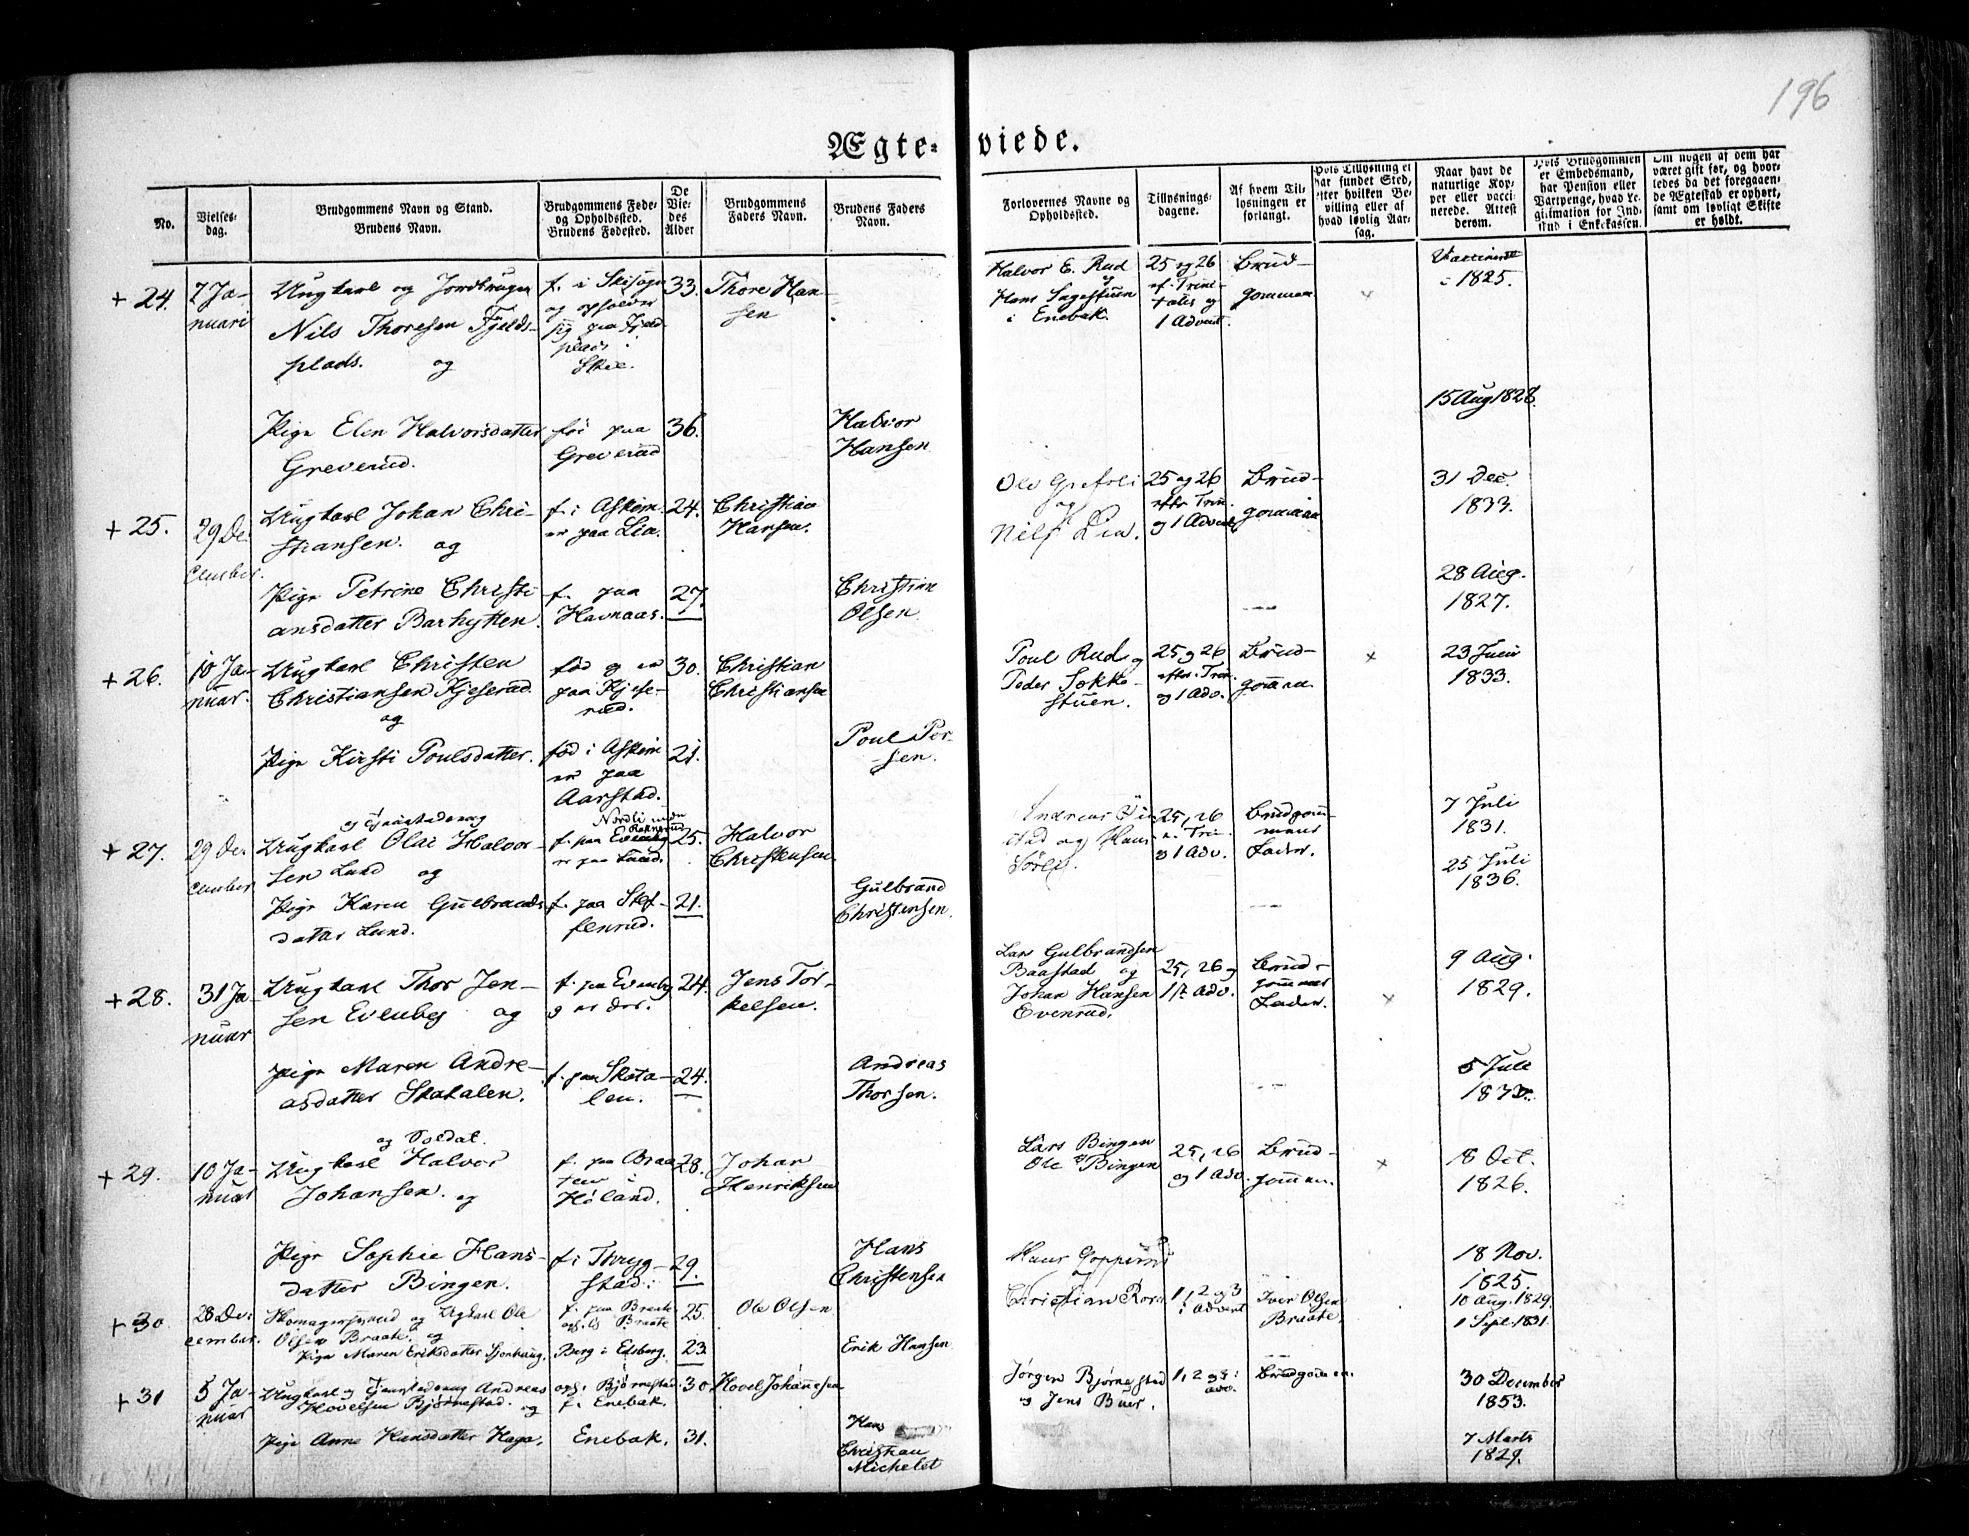 196
Ægteviede.
No.
Vielsesdag.
Brudgommens Navn og Stand.
Brudens Navn.
Brudgommens Føde- og Opholdssted.
Brudens Fødested.
De Viedes Alder
Brudgommens Faders Navn.
Brudens Faders Navn.
Forlovernes Navne og Opholdssted.
Tillysningsdagene.
Af hvem Tillysningen er forlangt.
Hvis Tillysning ei har fundet Sted, efter hvilken Bevilling eller af hvad lovlig Aarsag.
Naar havt de naturlige Kopper eller vaccinerede. Attest derom.
Hvis Brudgommen er Embedsmand, har Pension eller Vartpenge, hvad Legitimation for Indskud i Enkekassen.
Om nogen af dem har været gift før, og hvorledes da det foregaaende Ægtestad er ophørt, samt om lovligt Skifte er holdt.
+ 24.
7 Ja-
nuari
Ungkarl og Jordbruger
Nils Thoresen Fjelds-
plads. og
f. i Skisogn
og opholder
sig paa Fjeld
plads i
Skie.
33.
Thore Han-
sen
Halvor E. Rud
og
Hans Sagestuen
i Enebak.
25 og 26
ef. Trini-
tatis og
1 Advent.
Brud-
gommen
Vaccineret
1825.
Pige Elen Halvorsdatter
Greverud.
fød paa
Greverud
36.
Halvor
Hansen
15 Aug 1828.
+ 25.
29 De-
cember.
Ungkarl Johan Chri-
stiansen. og
f. i Askim
er paa Lia.
24.
Christian
Hansen.
og
Nils Lia.
25 og 26
efter Trin.
og 1 Advent
Brud-
gommen
31 Dec
1833.
Pige Petrine Christi
ansdatter Barhytten.
f. paa
Havnaas.
27.
Christian
Olsen
28 Aug.
1827.
+ 26.
10 Ja-
nuar.
Ungkarl Christen
Christiansen Kjeserud
og
fød og er
paa Kjese-
rud.
30.
Christian
Christiansen
Poul Rud og
Peder Sokke-
stuen.
25 og 26
efter Trin.
og 1 Adv.
Brud-
gommen.
x
23 Juni
1833.
Pige Kirsti Poulsdatter.
fød i Askim
er paa
Aarstad.
21.
Poul Per-
sen.
+ 27.
29 De-
cember
Ungkarl Olai Halvor-
sen Lund og
f. paa
er paa Lund.
25.
Halvor
Christensen
25, 26
e. Trin.
og 1 Adv.
Brudgom-
mens
Fader.
7 Juli
1831.
Pige Karen Gulbrands
datter Lund.
f. paa Stef-
fenrud.
21.
Gulbrand
Christensen.
25 Juli
1836.
+ 28.
31 Ja-
nuar
Ungkarl Thor Jen-
sen Evenbye og
f. paa Evenby
og er der.
24.
Jens Tor-
kelsen.
Lars Gulbrandsen
Baastad og
Johan Hansen
Evenrud.
25, 26 og
1ste Adv.
Brud-
gommens
Fader.
x
9 Aug.
1829.
Pige Maren Andre-
asdatter Skatalen.
f. paa Skata-
len.
24.
Andreas
Thorsen.
5 Juli
+ 29.
10 Ja-
nuar
og Soldat.
Ungkarl Halvor
Johansen. og
f. paa Braa
ten i
Høland.
28.
Johan
Henriksen
Lars Bingen
Ole Bingen
25, 26
og 1 Adv.
Brud-
gommen.
x
18 Oct.
1826.
Pige Sophie Hans-
datter Bingen.
f. i Thryg-
stad.
29.
Hans
Christensen
18 Nov.
1825.
+ 30.
28 De-
cember.
og Ungkarl Ole
Olsen Braate. og
Pige Maren Eriksdatter
f. paa Braate
ops. is Braate
Berg i Edsberg.
25.
23.
Ole Olsen
Erik Hansen
Christian
1, 2 og 3
i Advent
Iver Olsen
Braate.
10 Aug. 1829.
1 Sept. 1831.
+ 31
5 Ja-
nuar
Ungkarl og Andreas
Hovelsen Bjørnestad. og
Pige Anne Hansdatter Haga.
ops. i Bjørnestad
f. i Enebak.
Enebak.
30.
31.
Hovel Johannesen
Hans
Christian
Michelet
Jørgen Bjørnestad
og Jens Buer.
1, 2 og 3
adv.
Brudgommen.
30 December
1853.
7 Marts
1829.